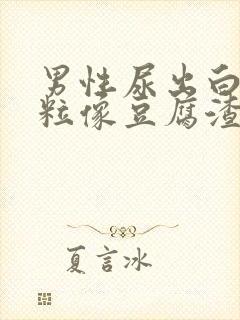 男性尿出白
粒像豆腐渣
夏言冰